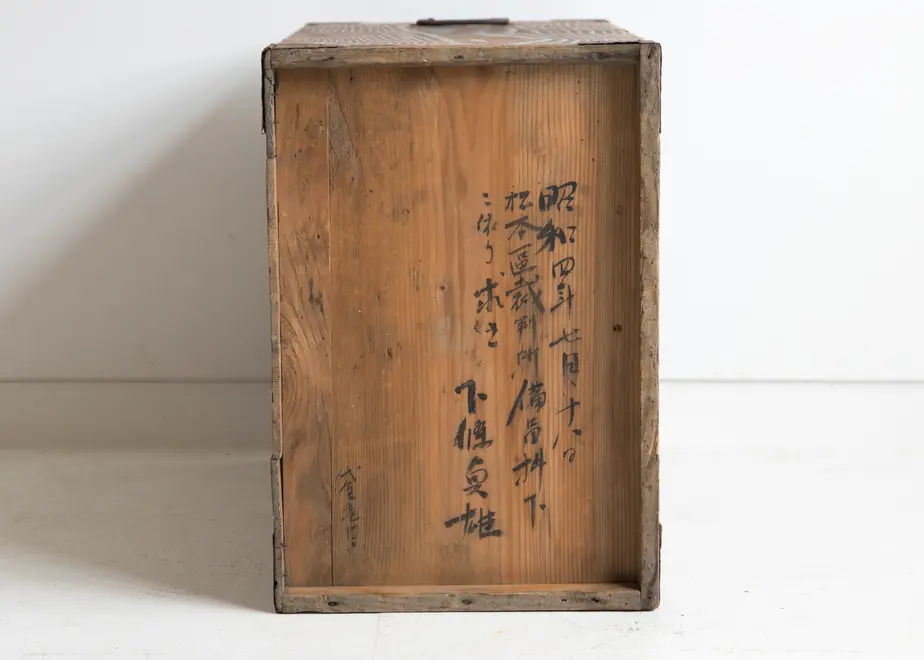 昭和四年七月十八日
松本區裁判所備品拂下
ニ依り求む
下條良雄